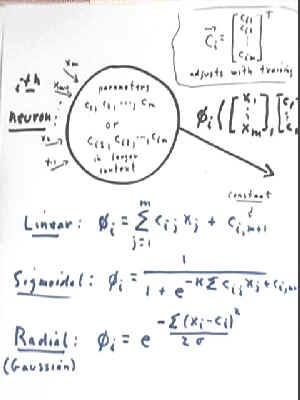 c⃗ᵢ = [cᵢ₁ cᵢ₂ ⋮ cᵢₘ]ᵀ
adjusts with training
iᵗʰ
neuron:
xₘ
x₂
x₁
parameters
c₁, c₂, ..., cₘ
or
cᵢ₁, cᵢ₂, ..., cᵢₘ
in larger
context
ϕᵢ([x₁ ⋮ xₘ], [c₁
constant
Linear: ϕᵢ = ∑ⱼ₌₁ᵐ cᵢⱼ xⱼ + cᵢ,ₘ₊₁
Sigmoidal: ϕᵢ = 1 / (1 + e^(-K∑cᵢⱼxⱼ+cᵢ,ₘ
Radial: ϕᵢ = e^(-∑(xᵢ-cᵢ)² / 2σ)
(Gaussian)